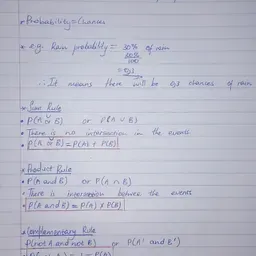 • Probability = Chances
• e.g. Rain probability = 30% of rain
= 0,3
∴ It means there will be 0,3 chances of rain
• Sum Rule
• P(A or B) or P(A ∪ B)
• There is no intersection in the events
• P(A or B) = P(A) + P(B)
• Product Rule
• P(A and B) or P(A ∩ B)
• There is intersection between the events
• P(A and B) = P(A) x P(B)
• Complementary Rule
P(not A and not B) or P(A' and B')